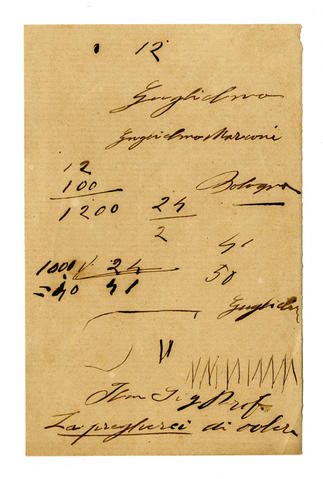 12
Guglielmo
Guglielmo Marconi
12
100
1200
Bologna
24
2
41
1000 24
50
= 40 41
Guglielm
Ilm Sig Prof.
La pregherei di voler